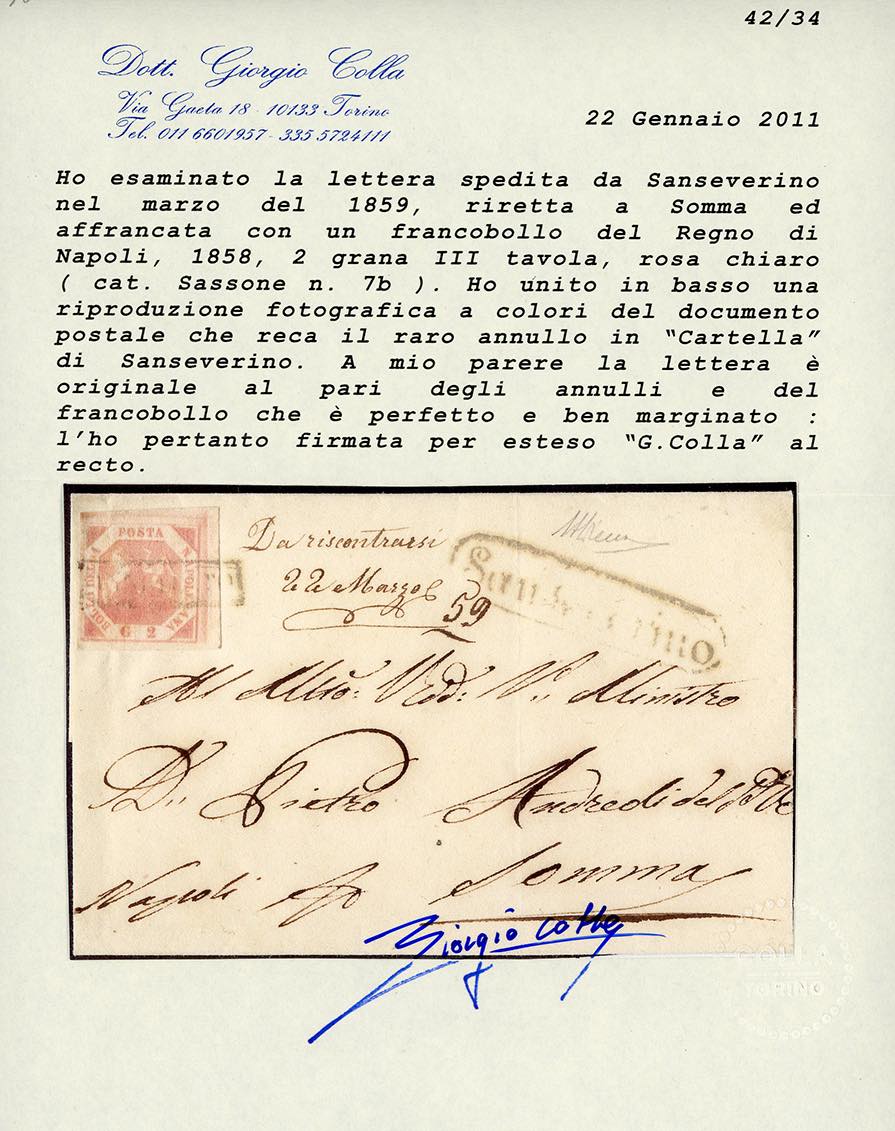 42/34
Dott. Giorgio Colla
Via Gaeta 18 - 10133 Torino
Tel. 011 6601957 - 335 5724111
22 Gennaio 2011
Ho esaminato la lettera spedita da Sanseverino
nel marzo del 1859, riretta a Somma ed
affrancata con un francobollo del Regno di
Napoli, 1858, 2 grana III tavola, rosa chiaro
( cat. Sassone n. 7b ). Ho unito in basso una
riproduzione fotografica a colori del documento
postale che reca il raro annullo in “Cartella”
di Sanseverino. A mio parere la lettera è
originale al pari degli annulli e del
francobollo che è perfetto e ben marginato :
l’ho pertanto firmata per esteso “G.Colla” al
recto.
POSTA
BOLLO DELLA
NAPOLETANA
G 2
Da riscontrarsi
22 Marzo
59
Sanseverino
Al Ministro
D. Pietro
Napoli Somma
Giorgio Colla
COLLA
TORINO